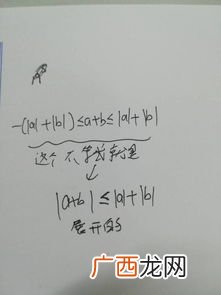 -(|a|+|b|)≤a+b≤|a|+|b|
这个不等式就是
↙
|a+b|≤|a|+|b|
展开的
广西龙网